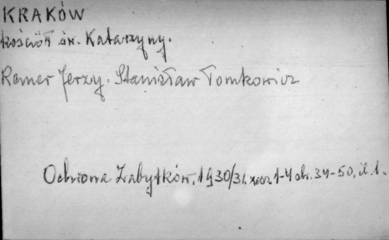 KRAKÓW
kościół św. Katarzyny.
Remer Jerzy. Stanisław Tomkowicz
Ochrona Zabytków, 1930/31, zesz. 1-4 str. 34-50, il. 1.